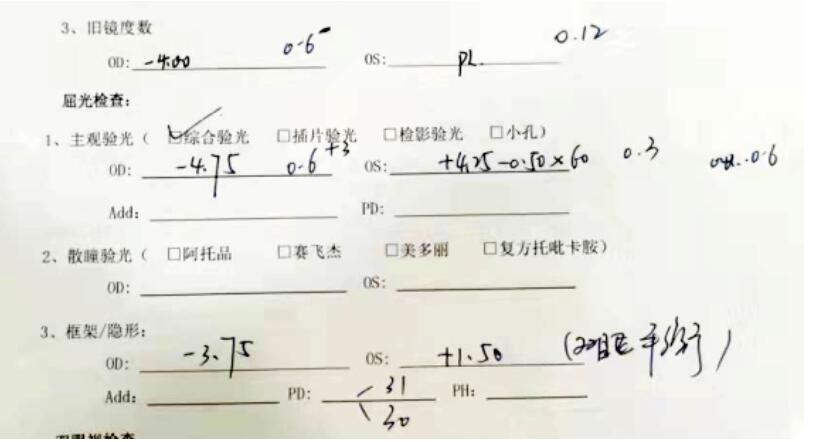 3、旧镜度数
OD: -4.00 0.6⁻ OS: PL. 0.12
屈光检查:
1、主观验光( ☑综合验光 □插片验光 □检影验光 □小孔)
OD: -4.75 0.6⁺³ OS: +4.25-0.50×60 0.3 0.6
Add: PD:
2、散瞳验光( □阿托品 □赛飞杰 □美多丽 □复方托吡卡胺)
OD: OS:
3、框架/隐形:
OD: -3.75 OS: +1.50 (双眼平衡)
Add: PD: 31 PH:
30